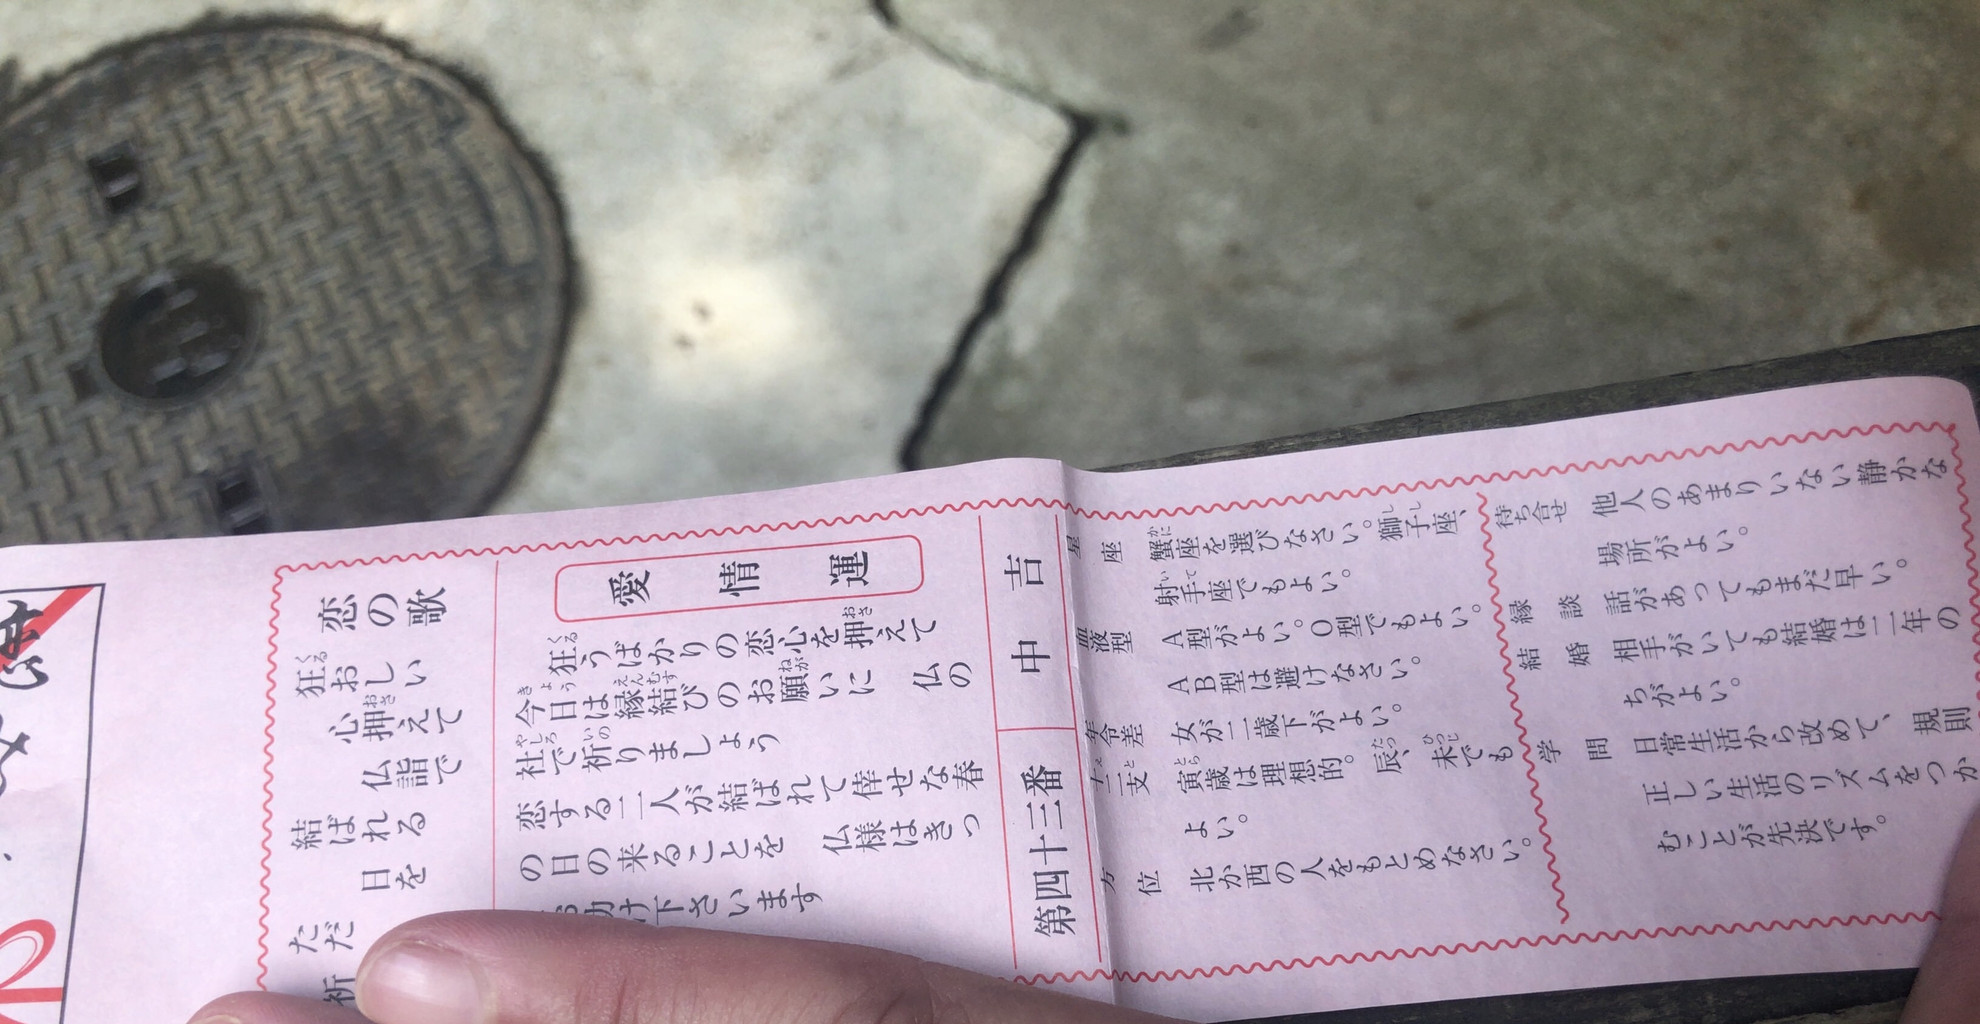 恋の歌
狂おしい
心押えて
仏詣で
結ばれる
日を
ただ
祈
愛情運
狂うばかりの恋心を押えて
今日は縁結びのお願いに 仏の
社で祈りましょう
恋する二人が結ばれて倖せな春
の日の来ることを 仏様はきっ
助け下さいます
第四十三番 中吉
星座 蟹座を選びなさい。獅子座、
射手座でもよい。
血液型 A型がよい。O型でもよい。
AB型は避けなさい。
年令差 女が二歳下がよい。
十二支 寅歳は理想的。辰、未でも
よい。
方位 北か西の人をもとめなさい。
待ち合せ 他人のあまりいない静かな
場所がよい。
縁談 話があってもまだ早い。
結婚 相手がいても結婚は二年の
ちがよい。
学問 日常生活から改めて、規則
正しい生活のリズムをつか
むことが先決です。